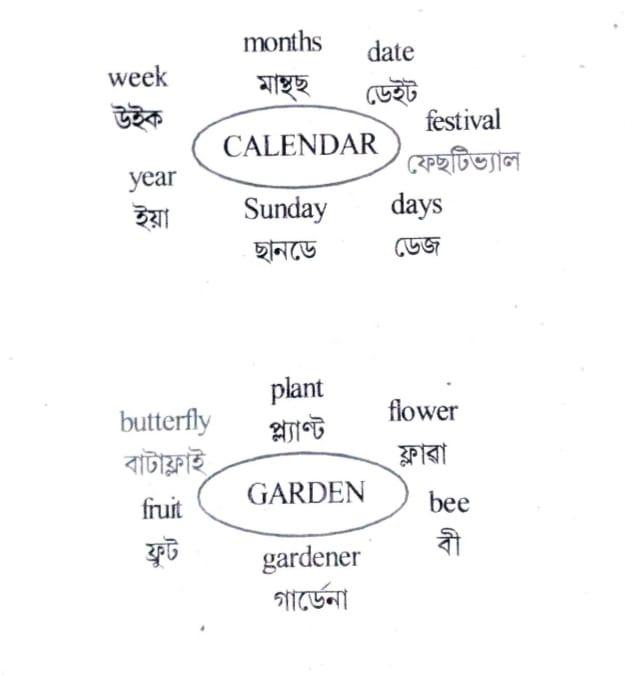 months
মান্থছ
date
ডেইট
week
উইক
festival
ফেছটিভ্যাল
CALENDAR
year
ইয়া
Sunday
ছানডে
days
ডেজ
plant
প্ল্যাণ্ট
butterfly
বাটাফ্লাই
flower
ফ্লাৱা
GARDEN
fruit
ফ্ৰুট
bee
বী
gardener
গাৰ্ডেনা